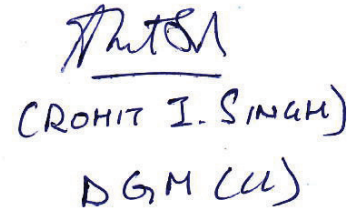 (ROHIT I. SINGH)
DGM (U)